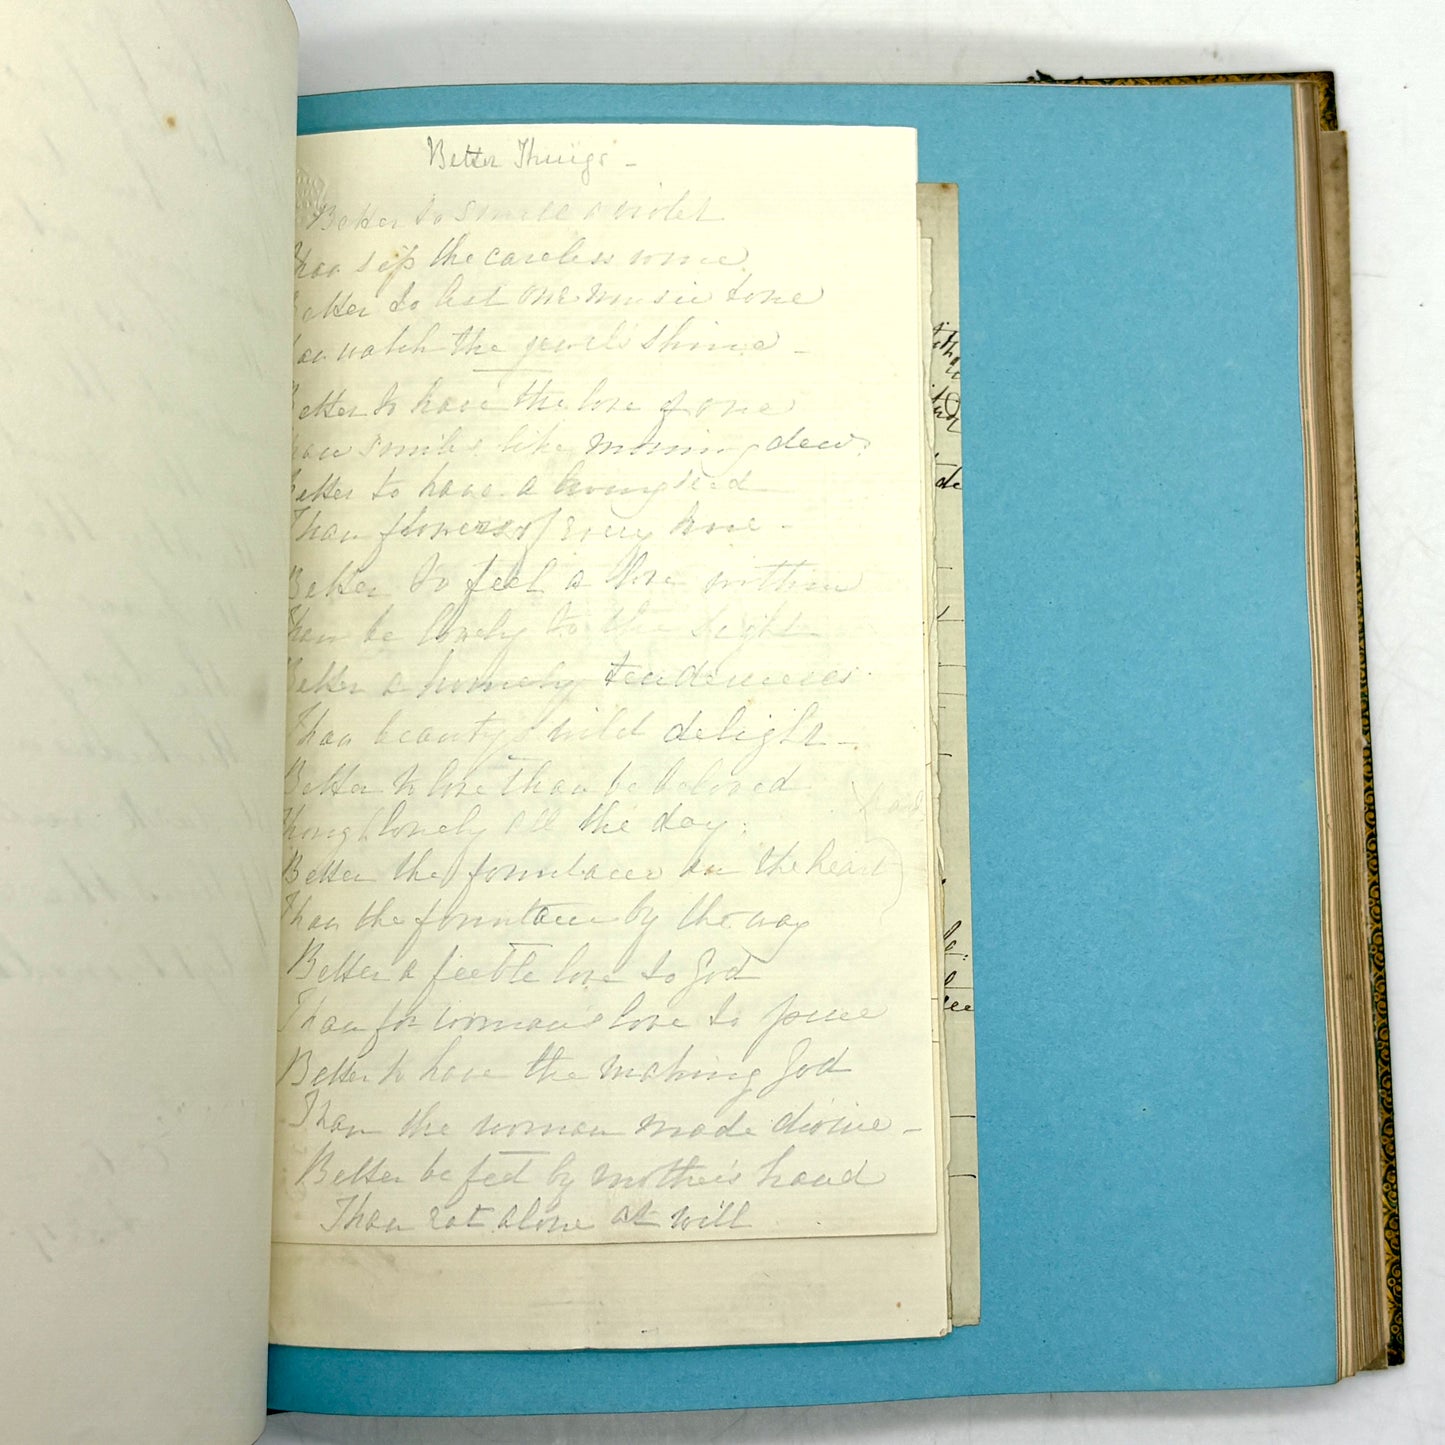 Better Things -
Better to smell a violet
Than sip the careless wine
Better to list one music tone
Than watch the jewels shine -
Better to have the love of one
Than smiles like morning dew
Better to have a living seed
Than flowers of every hue -
Better to feel a love within
Than be lovely to the sight
Better a homely tenderness
Than beauty's wild delight -
Better to love than be beloved
Though lonely all the day
Better the fountain in the heart
Than the fountain by the way
Better a feeble love to God
Than for woman's love to pine
Better to have the making God
Than the woman made divine -
Better be fed by mother's hand
Than eat alone at will